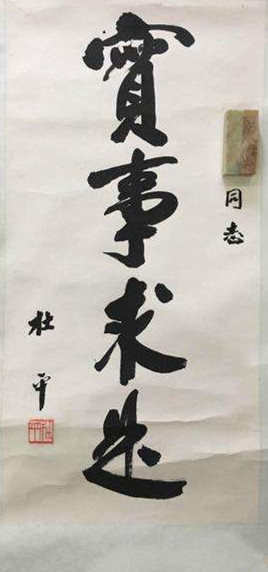 同志
實事求是
杜平